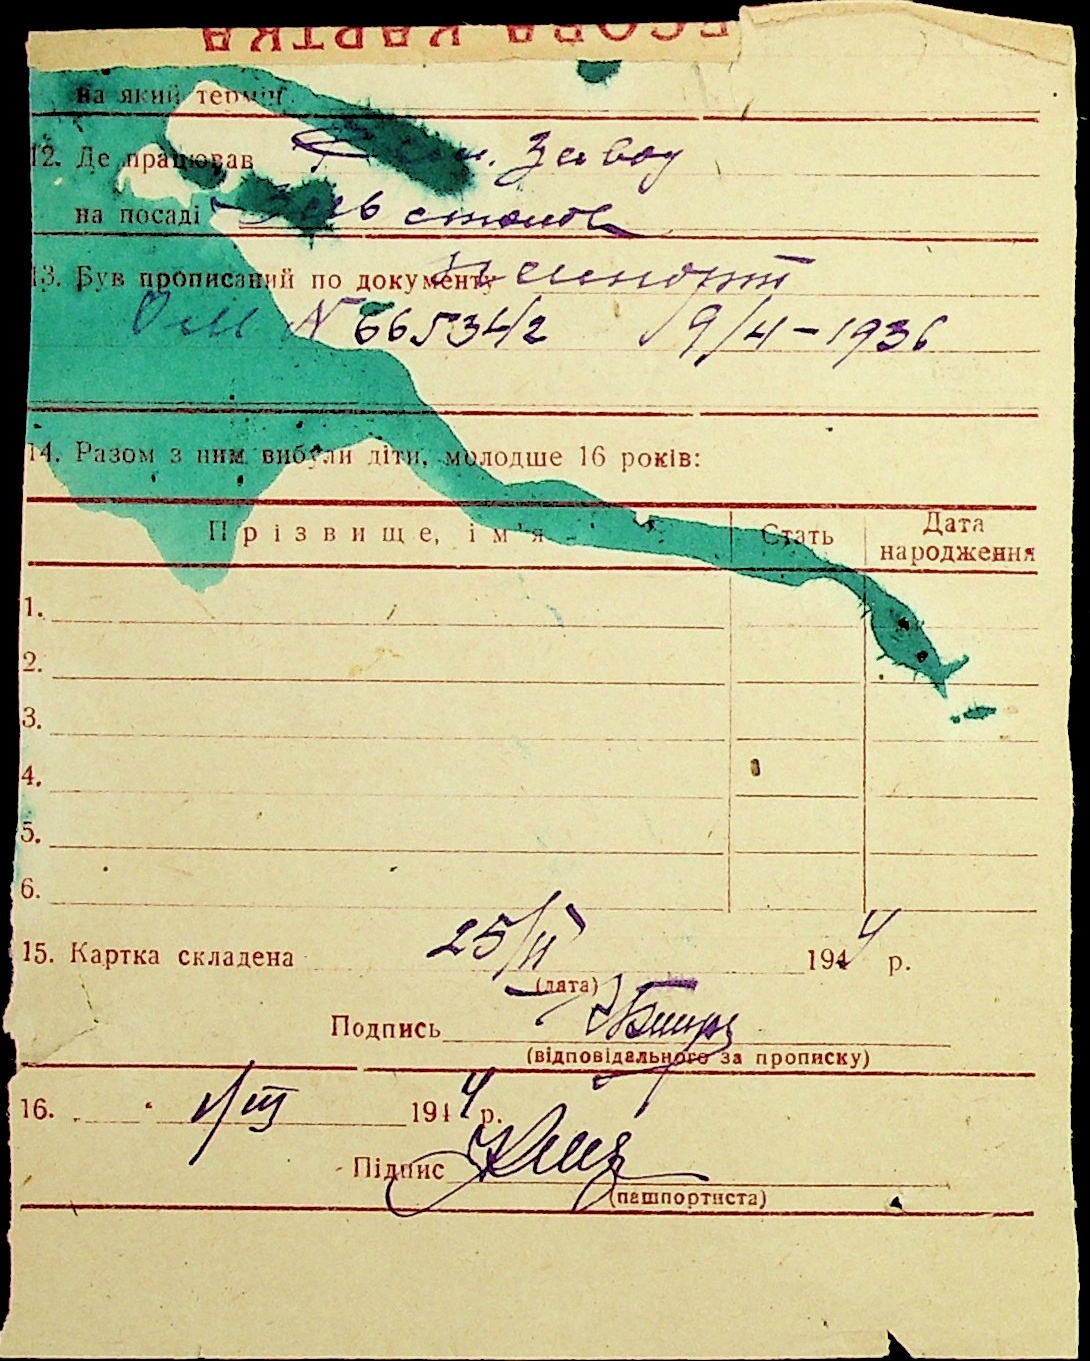 ЕСОВА КАРТКА
на який термін
12. Де працював завод
на посаді
13. Був прописаний по документу паспорт
N 665342 19/4-1936
14. Разом з ним вибули діти, молодше 16 років:
Прізвище, ім'я Стать Дата народження
1.
2.
3.
4.
5.
6.
15. Картка складена 25/II 1944 р.
(дата)
Подпись
(відповідального за прописку)
16. 1/III 1944 р.
Підпис
(пашпортиста)